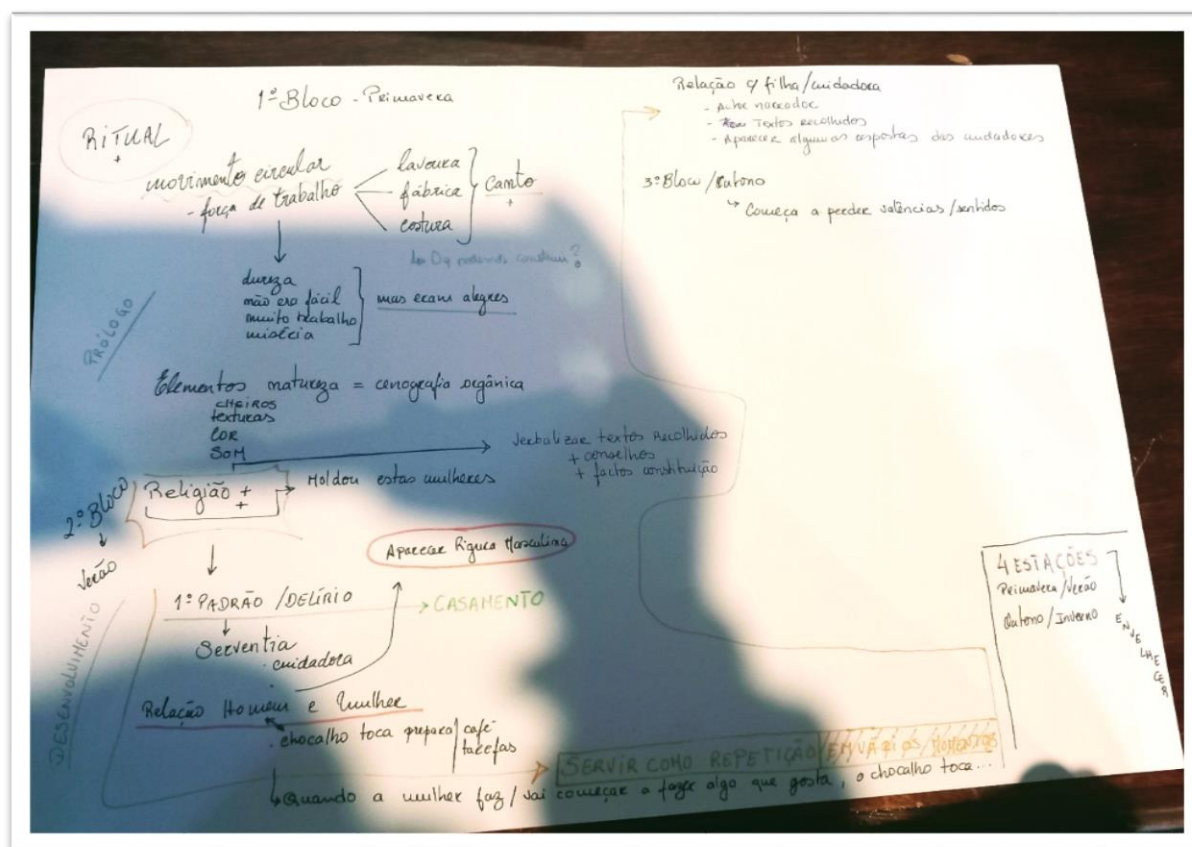 1º Bloco - Primavera
RITUAL
+
movimento circular
- força de trabalho
lavoura
fábrica
costura
Canto
+
dureza
não era fácil
muito trabalho
miséria
mas eram alegres
PRÓLOGO
Elementos natureza = cenografia orgânica
CHEIROS
texturas
COR
SOM
Verbalizar textos recolhidos
+ conselhos
+ factos constituição
2º Bloco
Verão
Religião +
+
Moldou estas mulheres
Aparecer Figura Masculina
DESENVOLVIMENTO
1º PADRÃO / DELÍRIO
CASAMENTO
Serventia
. cuidadora
Relação Homem e Mulher
. chocalho toca prepara café
tarefas
SERVIR COMO REPETIÇÃO EM VÁRIOS MOMENTOS
Quando a mulher faz / vai começar a fazer algo que gosta, o chocalho toca...
Relação c/ filha/cuidadora
- Actor narrador
- Textos recolhidos
- Aparecer algumas respostas das cuidadoras
3º Bloco / Outono
Começa a perder valências / sentidos
4 ESTAÇÕES
Primavera / Verão
Outono / Inverno
ENVELHECER